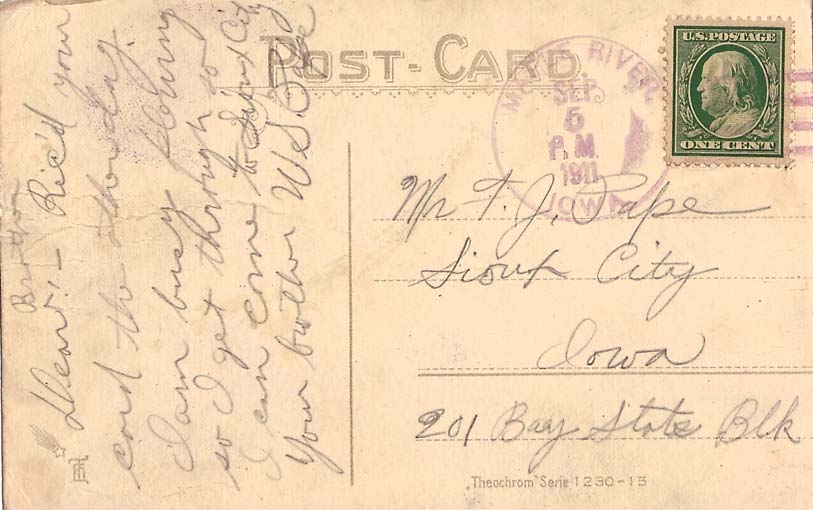 POST-CARD
U.S. POSTAGE
ONE CENT
RIVER
SEP
5
P.M.
1911
IOWA
Brother
Dear :- Rec'd your
card the other day.
I am busy plowing
so I get through so
I can come to Sioux City
Your brother W S Pape
Mr T. J. Pape
Sioux City
Iowa
201 Bay State Blk
"Theochrom" Serie 1230-15